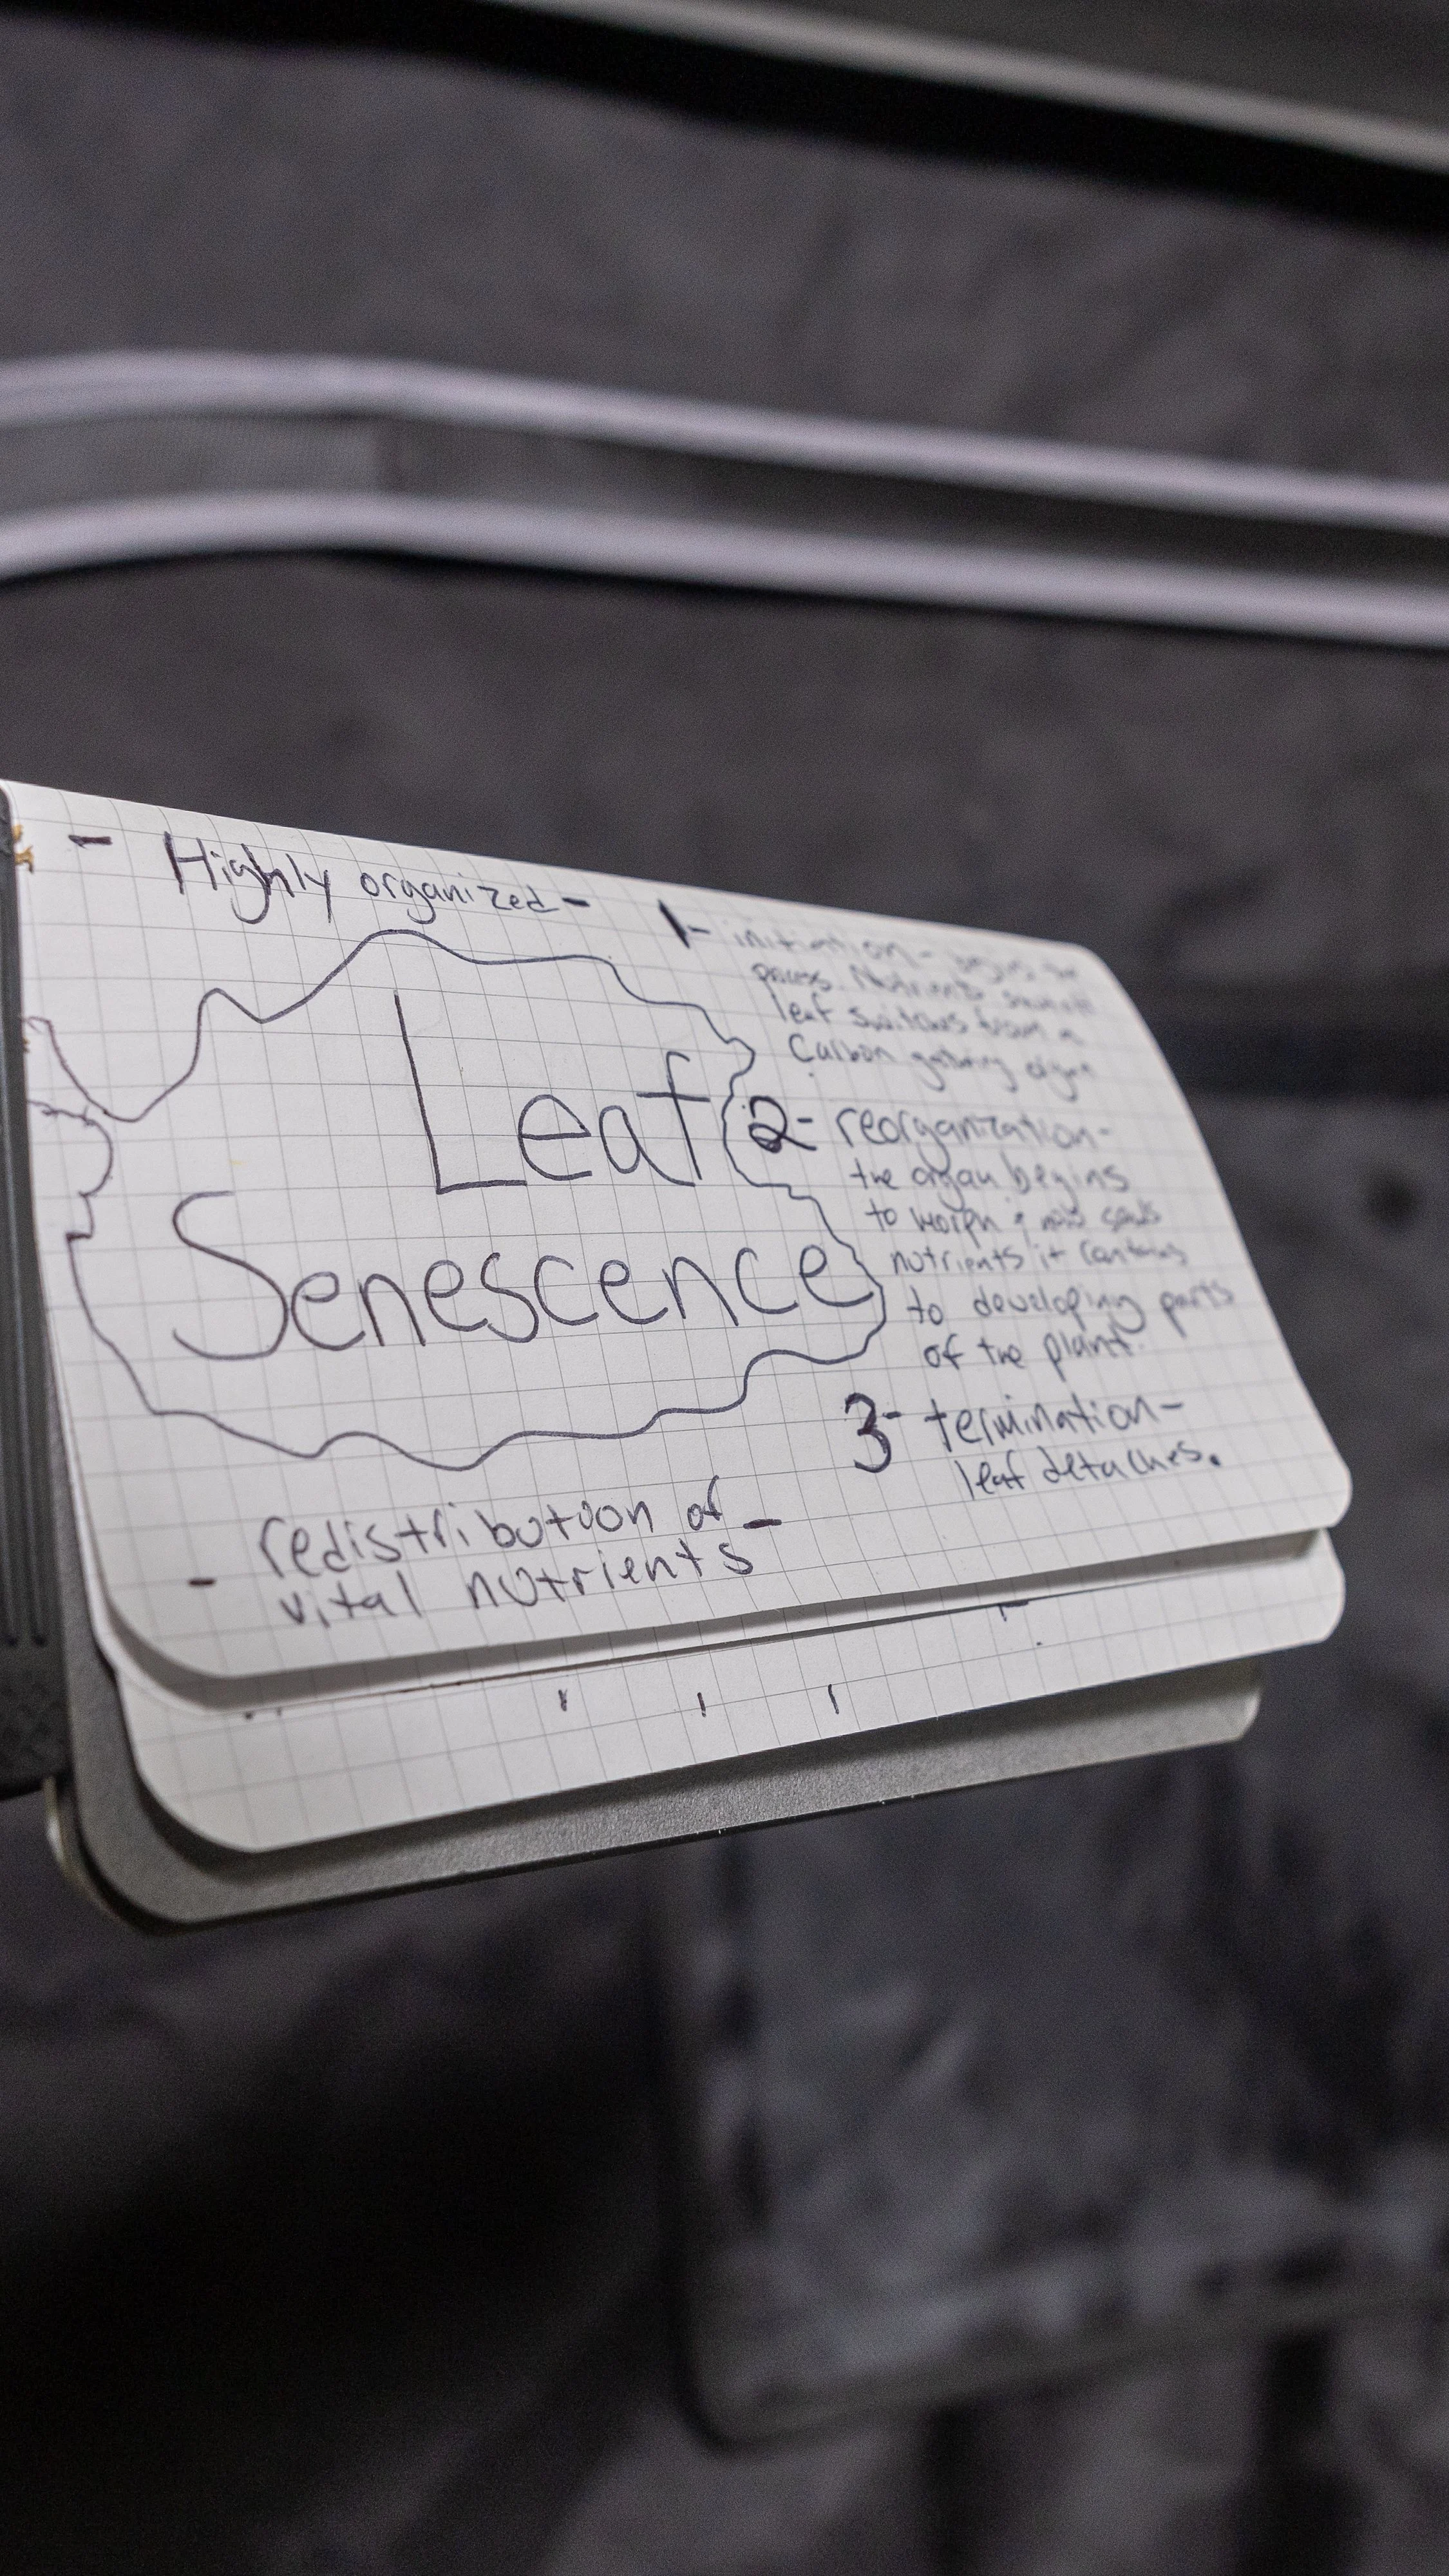 - Highly organized -
Leaf
Senescence
- redistribution of -
vital nutrients
1- initiation - begins the
process. Nutrients
leaf switches from a
Carbon gathering organ
2- reorganization-
the organ begins
to morph & now sends
nutrients it contains
to developing parts
of the plant.
3- termination-
leaf detaches.